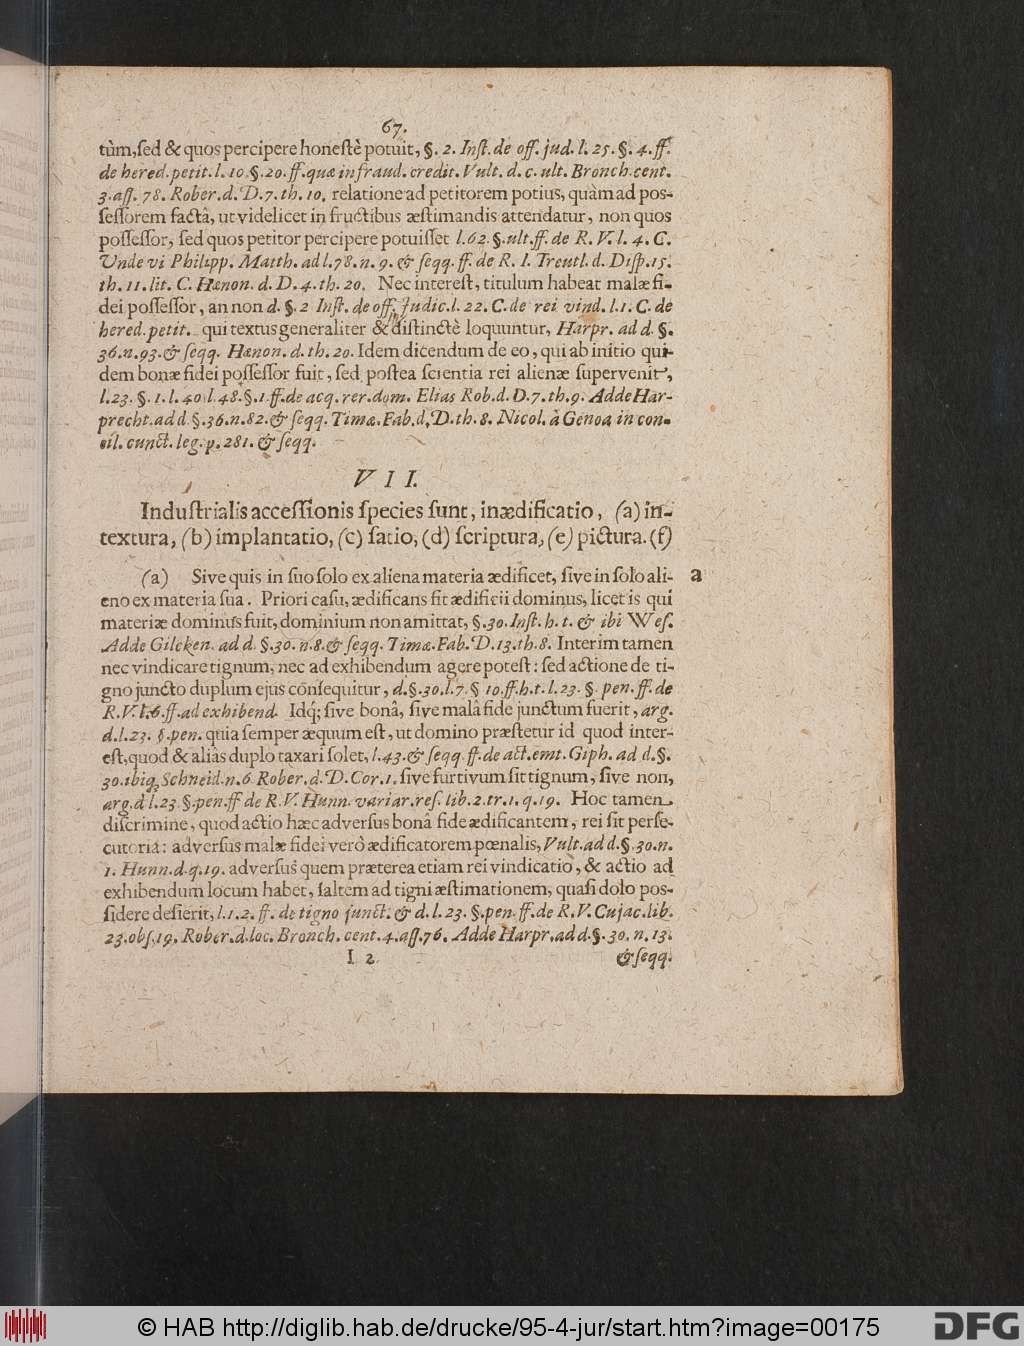 67.
tùm, sed & quos percipere honestè potuit, §. 2. Inst. de off. jud. l. 25. §. 4. ff.
de hered. petit. l. 10. §. 20. ff. quæ in fraud. credit. Vult. d. c. ult. Bronch. cent.
3. ass. 78. Rober. d. D. 7. th. 10. relatione ad petitorem potius, quàm ad pos-
sessorem factâ, ut videlicet in fructibus æstimandis attendatur, non quos
possessor, sed quos petitor percipere potuisset l. 62. §. ult. ff. de R. V. l. 4. C.
Unde vi Philipp. Matth. ad l. 78. n. 9. & seqq. ff. de R. I. Treutl. d. Disp. 15.
th. 11. lit. C. Hænon. d. D. 4. th. 20. Nec interest, titulum habeat malæ fi-
dei possessor, an non d. §. 2 Inst. de off. Judic. l. 22. C. de rei vind. l. 1. C. de
hered. petit. qui textus generaliter & distinctè loquuntur, Harpr. ad d. §.
36. n. 93. & seqq. Hænon. d. th. 20. Idem dicendum de eo, qui ab initio qui-
dem bonæ fidei possessor fuit, sed postea scientia rei alienæ supervenit,
l. 23. §. 1. l. 40. l. 48. §. 1. ff. de acq. rer. dom. Elias Rob. d. D. 7. th. 9. Adde Har-
precht. ad d. §. 36. n. 82. & seqq. Timæ. Fab. d. D. th. 8. Nicol. à Genoa in con-
cil. cunct. leg. p. 281. & seqq.
VII.
Industrialis accessionis species sunt, inædificatio, (a) in-
textura, (b) implantatio, (c) satio, (d) scriptura, (e) pictura. (f)
(a) Sive quis in suo solo ex aliena materia ædificet, sive in solo ali- a
eno ex materia sua. Priori casu, ædificans fit ædificii dominus, licet is qui
materiæ dominus fuit, dominium non amittat, §. 30. Inst. h. t. & ibi Wes.
Adde Gilcken. ad d. §. 30. n. 8. & seqq. Timæ. Fab. D. 13. th. 8. Interim tamen
nec vindicare tignum, nec ad exhibendum agere potest: sed actione de ti-
gno juncto duplum ejus consequitur, d. §. 30. l. 7. § 10. ff. h. t. l. 23. §. pen. ff. de
R. V. l. 6. ff. ad exhibend. Idq; sive bonâ, sive malâ fide junctum fuerit, arg.
d. l. 23. §. pen. quia semper æquum est, ut domino præstetur id quod inter-
est, quod & aliàs duplo taxari solet, l. 43. & seqq. ff. de act. emt. Giph. ad d. §.
30. ibiq; Schneid. n. 6. Rober. d. D. Cor. 1. sive furtivum sit tignum, sive non,
arg. d l. 23. §. pen. ff de R. V. Hunn. variar. res. lib. 2. tr. 1. q. 19. Hoc tamen
discrimine, quod actio hæc adversus bonâ fide ædificantem, rei sit perse-
cutoria: adversus malæ fidei verò ædificatorem pœnalis, Vult. ad d. §. 30. n.
1. Hunn. d. q. 19. adversus quem præterea etiam rei vindicatio, & actio ad
exhibendum locum habet, saltem ad tigni æstimationem, quasi dolo pos-
sidere desierit, l. 1. 2. ff. de tigno junct. & d. l. 23. §. pen. ff. de R. V. Cujac. lib.
23. obs. 19. Rober. d. loc. Bronch. cent. 4. ass. 76. Adde Harpr. ad d. §. 30. n. 13.
I 2 & seqq.
© HAB http://diglib.hab.de/drucke/95-4-jur/start.htm?image=00175
DFG